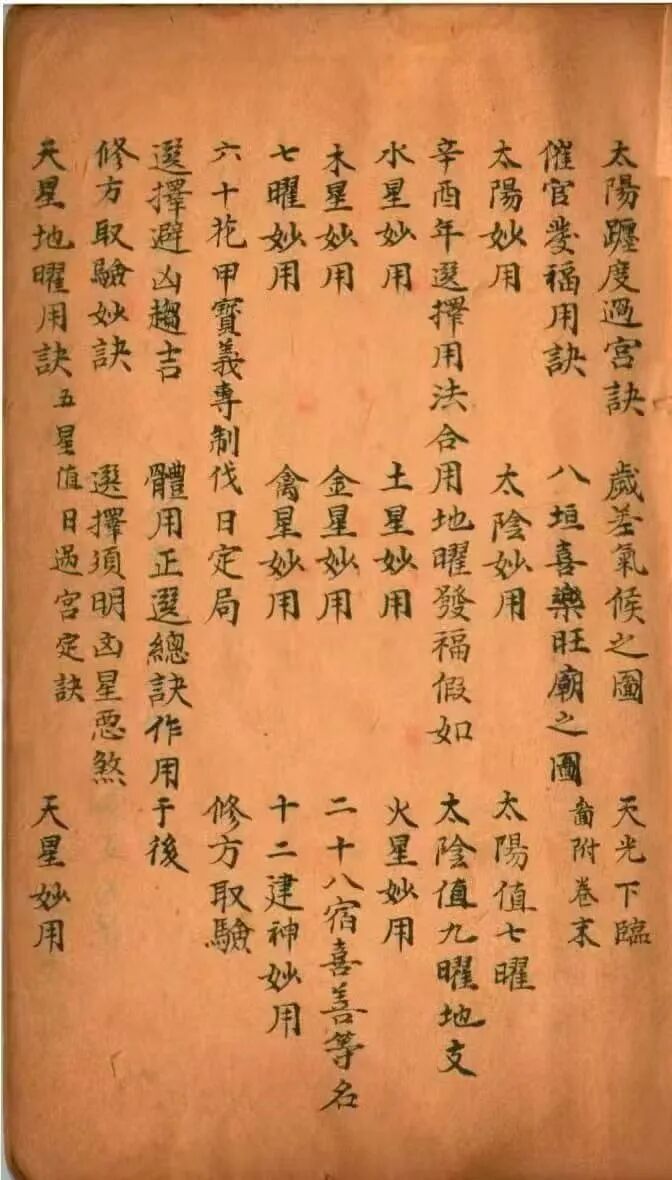 太陽躔度過宮訣 歲差氣候之圖 天光下臨
催官發福用訣 八垣喜樂旺廟之圖 啚附卷末
太陽妙用 太陰妙用 太陽值七曜
辛酉年選擇用法合用地曜發福假如 太陰值九曜地支
水星妙用 土星妙用 火星妙用
木星妙用 金星妙用 二十八宿喜善等名
七曜妙用 禽星妙用 十二建神妙用
六十花甲寶義專制伐日定局 修方取驗
選擇避凶趨吉 體用正選總訣作用于後
修方取驗妙訣 選擇須明凶星惡煞
天星地曜用訣 五星值日過宮定訣 天星妙用